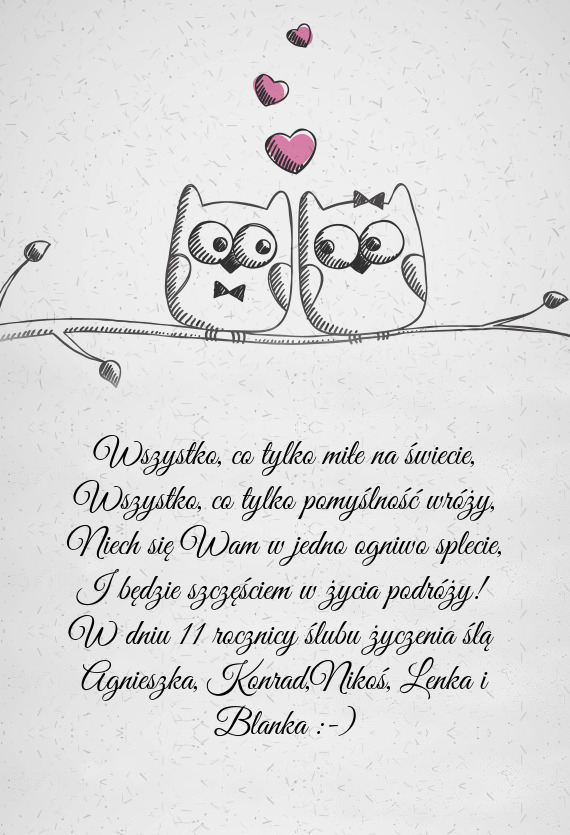 Wszystko, co tylko miłe na świecie,
Wszystko, co tylko pomyślność wróży,
Niech się Wam w jedno ogniwo splecie,
I będzie szczęściem w życia podróży!
W dniu 11 rocznicy ślubu życzenia ślą
Agnieszka, Konrad,Nikoś, Lenka i
Blanka :-)